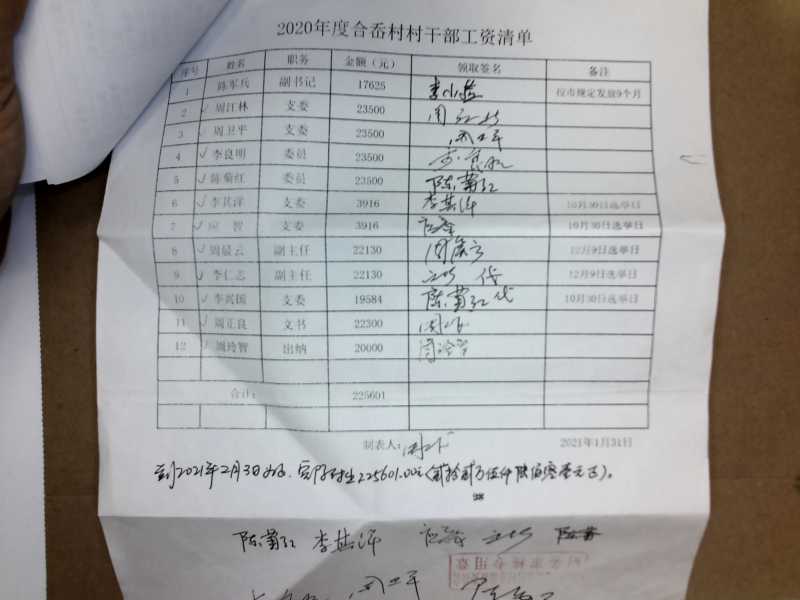 2020年度合岙村村干部工资清单
序号 姓名 职务 金额（元） 领取签名 备注
1 陈军兵 副书记 17625 按市规定发放9个月
2 周江林 支委 23500
3 周卫平 支委 23500 周卫平
4 李良明 委员 23500
5 陈菊红 委员 23500 陈菊红
6 李其洋 支委 3916 李其洋 10月30日选举日
7 应智 支委 3916 10月30日选举日
8 周晨云 副主任 22130 周晨云 12月9日选举日
9 李仁志 副主任 22130 代 12月9日选举日
10 李兴国 支委 19584 陈菊红代 10月30日选举日
11 周正良 文书 22300
12 周玲智 出纳 20000 周玲智
合计： 225601
制表人： 2021年1月31日
到2021年2月3日止，实际付出225601.00元（贰拾贰万伍仟陆佰零壹元正）。
陈菊红 李其洋
周卫平